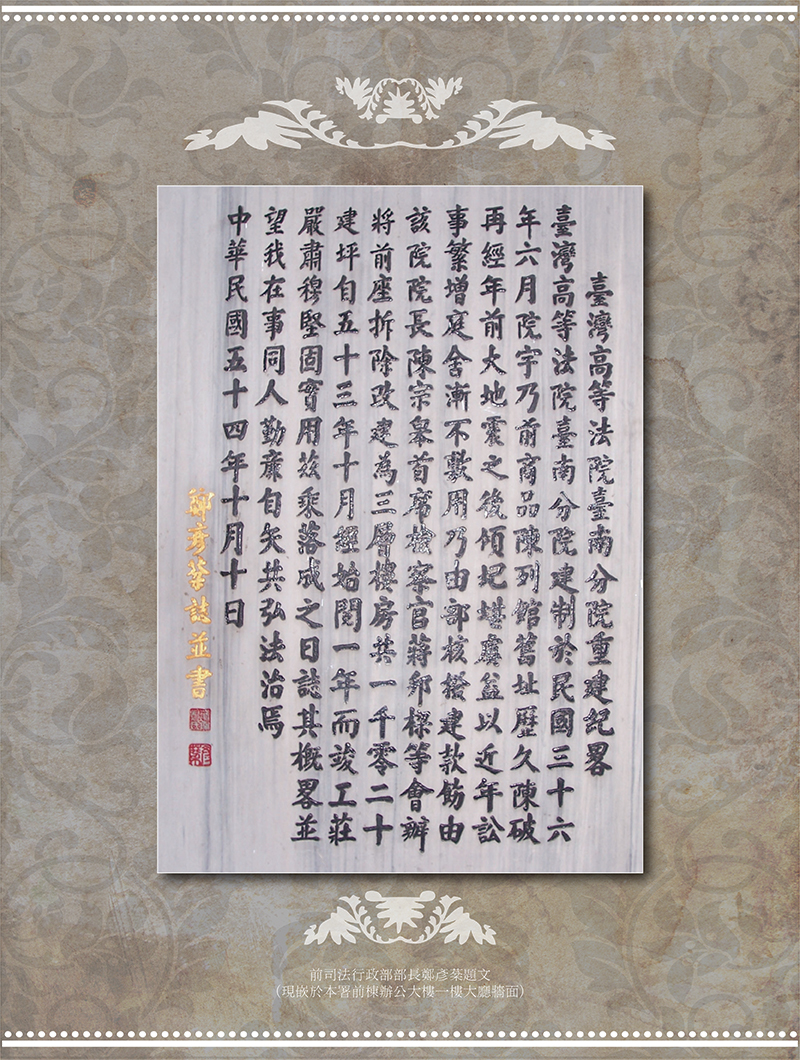 臺灣高等法院臺南分院重建紀畧
臺灣高等法院臺南分院建制於民國三十六
年六月院宇乃前商品陳列館舊址歷久陳破
再經年前大地震之後傾圮堪虞益以近年訟
事繁增庭舍漸不敷用乃由部核撥建款飭由
該院院長陳宗皋首席檢察官蔣邦樑等會辦
將前座拆除改建為三層樓房共一千零二十
建坪自五十三年十月經始閱一年而竣工莊
嚴肅穆堅固實用茲乘落成之日誌其概畧並
望我在事同人勤廉自矢共弘法治焉
中華民國五十四年十月十日
鄭彥棻誌並書
前司法行政部部長鄭彥棻題文
（現嵌於本署前棟辦公大樓一樓大廳牆面）